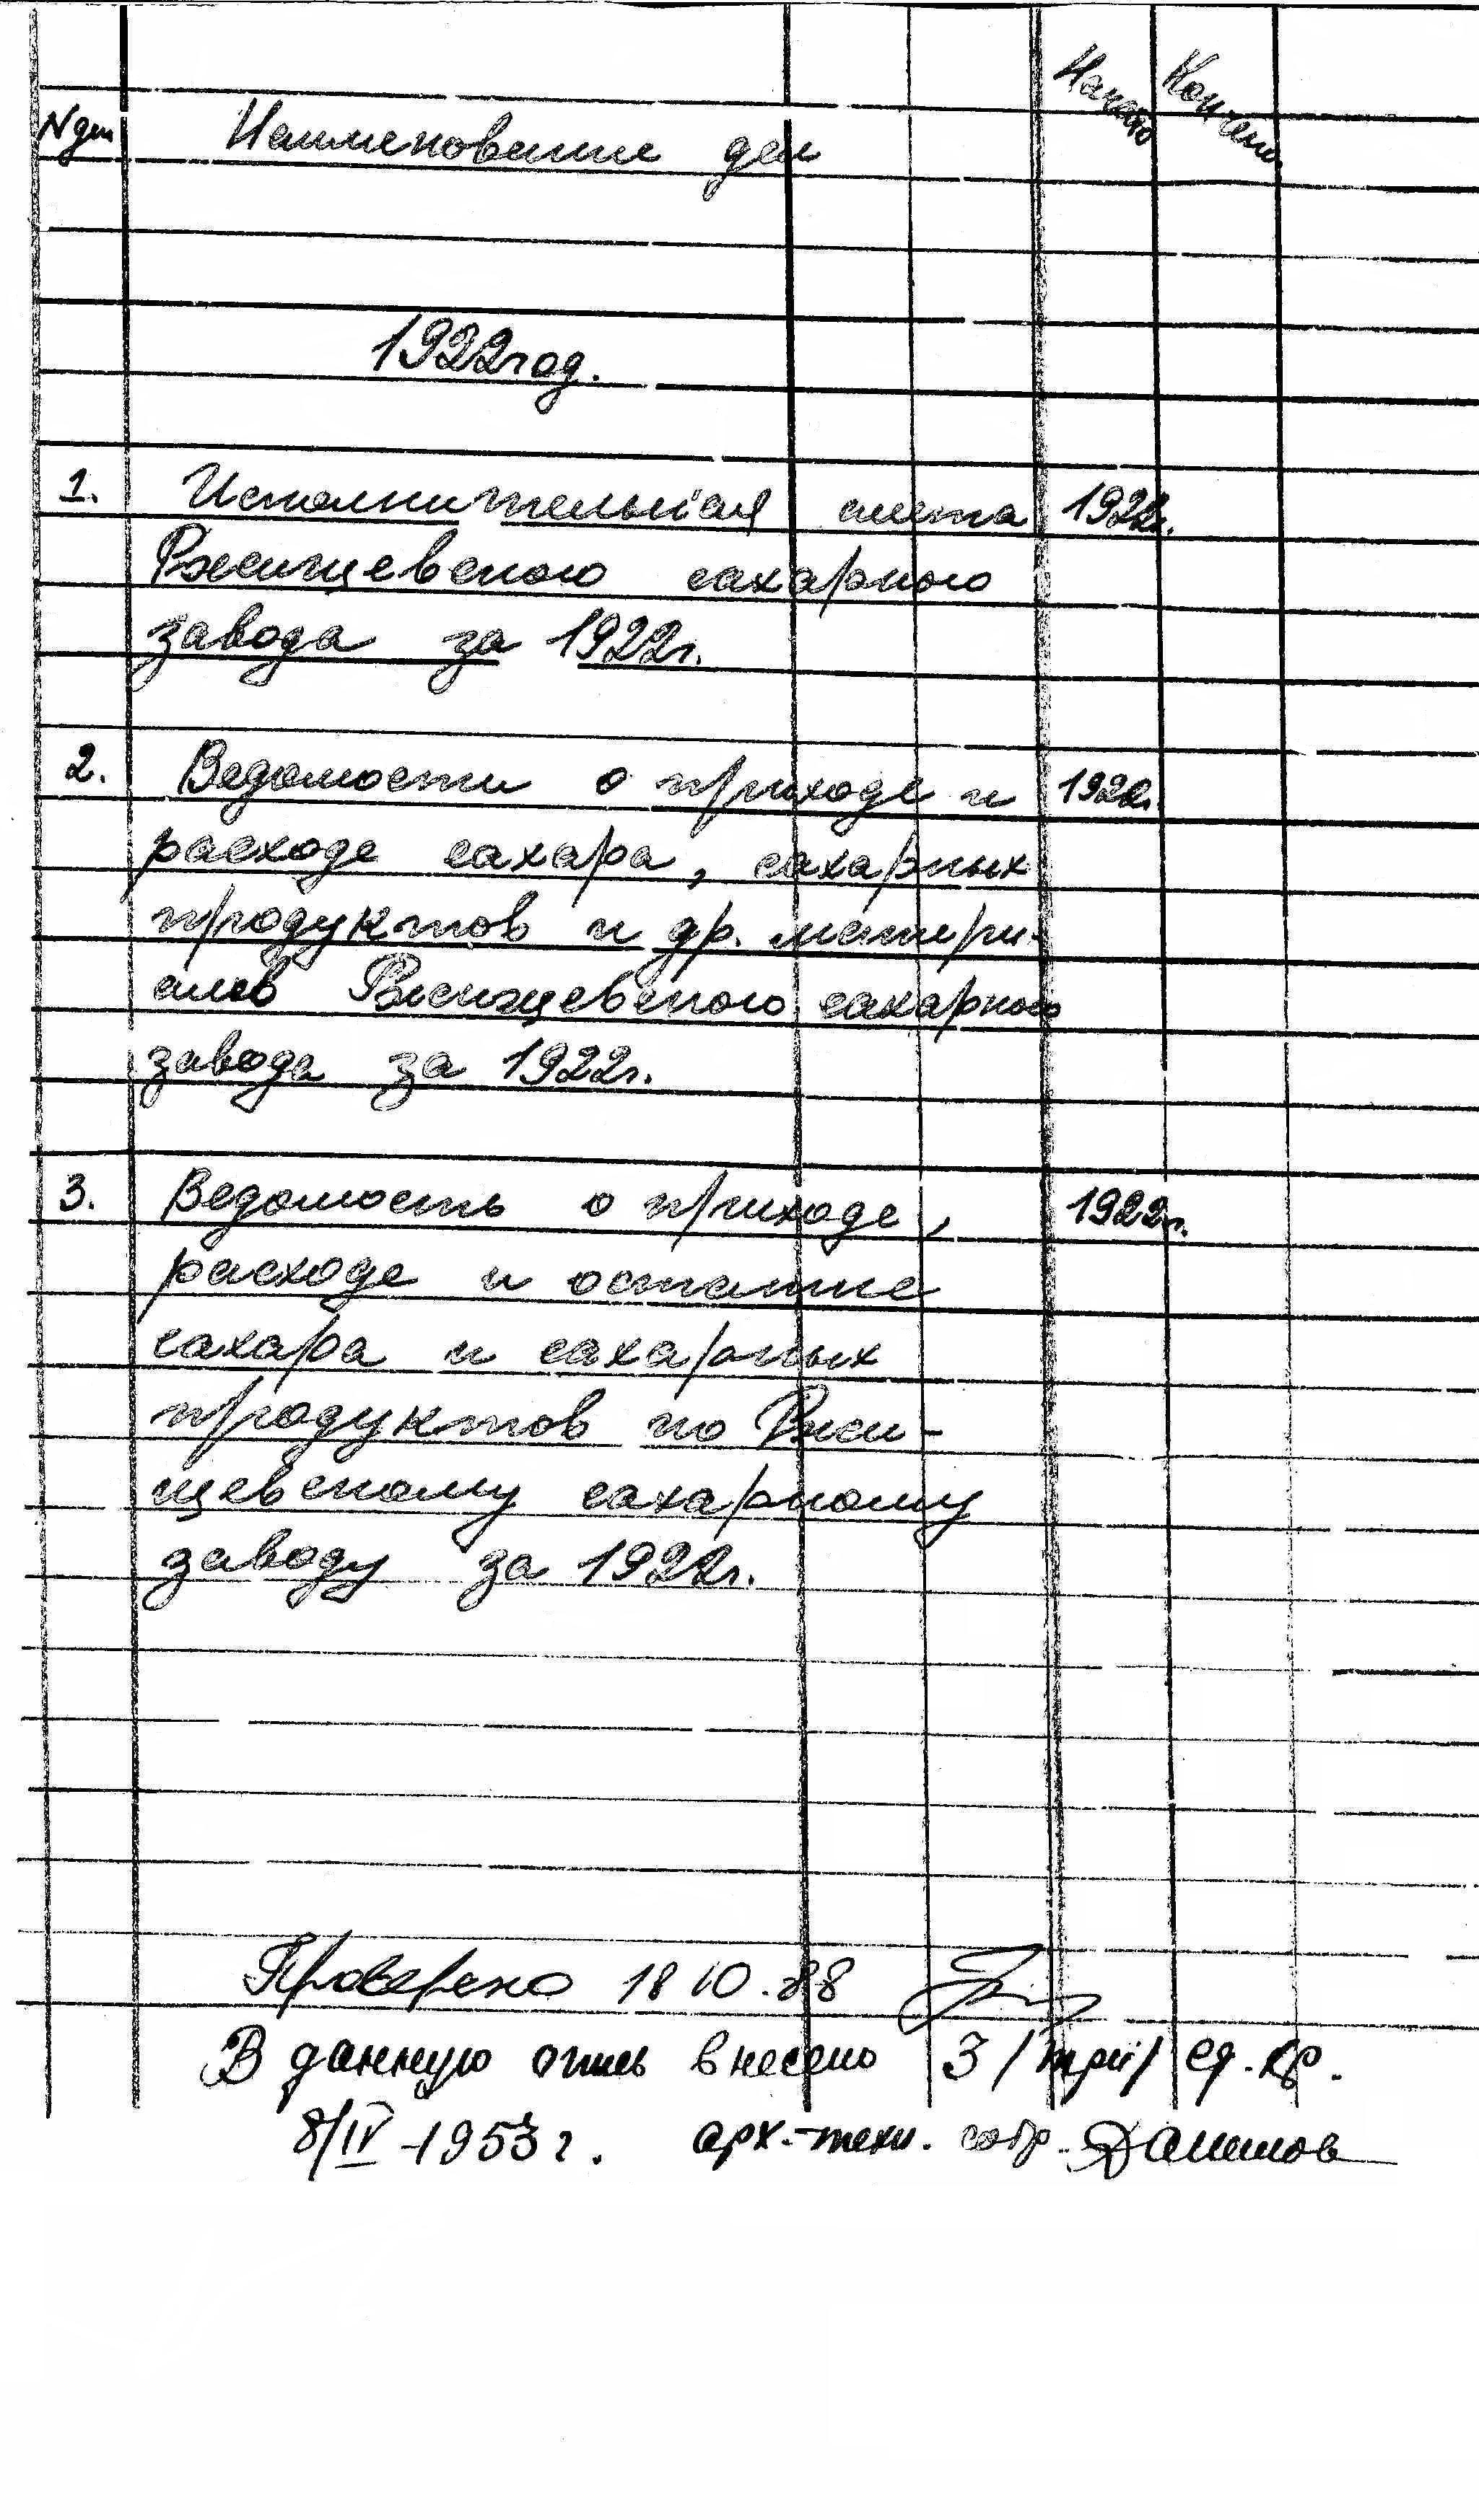 № дел Наименование дел Начато Кончено
1922 год.
1. Исполнительная смета 1922г.
Ржищевского сахарного
завода за 1922г.
2. Ведомости о приходе и 1922г.
расходе сахара, сахарных
продуктов и др. матери-
алов Ржищевского сахарного
завода за 1922г.
3. Ведомость о приходе, 1922г.
расходе и остатке
сахара и сахарных
продуктов по Ржи-
щевскому сахарному
заводу за 1922г.
Проверено 18 10.88
В данную опись внесено 3 /три/ ед. хр.
8/IV-1953г. арх.-техн. сотр.